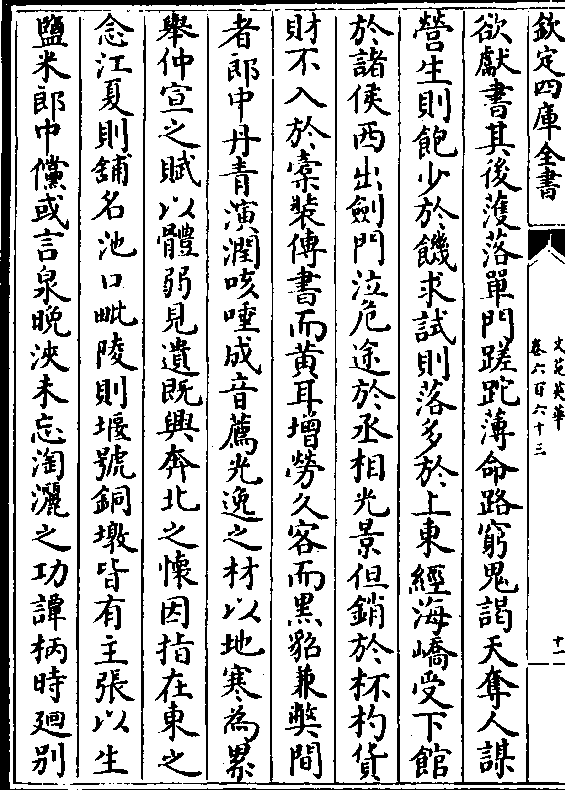 欽定四庫全書
文苑英華
卷六百六十三
十一
欲獻書其後濩落單門蹉跎薄命路窮鬼謁天奪人謀
營生則飽少於饑求試則落多於上東經海嶠受下館
於諸侯西出劍門泣危途於丞相光景但銷於杯杓貨
財不入於橐裝傳書而黃耳增勞久客而黑貂兼弊間
者郎中丹青演潤咳唾成音薦光逸之材以地寒為累
舉仲宣之賦以體弱見遺既興奔北之懷因指在東之
念江夏則鋪名池口毗陵則堰號銅墩皆有主張以生
鹽米郎中儻或言泉晚浹未忘淘灑之功譚柄時廻別